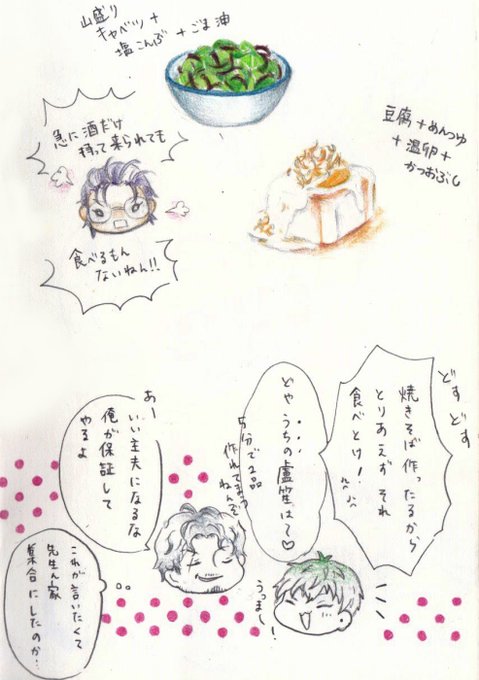 山盛り
キャベツ+
塩こんぶ+ごま油
豆腐+めんつゆ
+温卵+
かつおぶし
急に酒だけ
持って来られても
食べるもん
ないねん!!
どすどす
焼きそば作ったるから
とりあえずそれ
食べとけ!
どやうちの盧笙はて♡
5分で2品
作れてまう
ねんぞ
うっまー!
あー
いい主夫になるな
俺が保証して
やるよ
これが言いたくて
先生ん家
集合にしたのか…